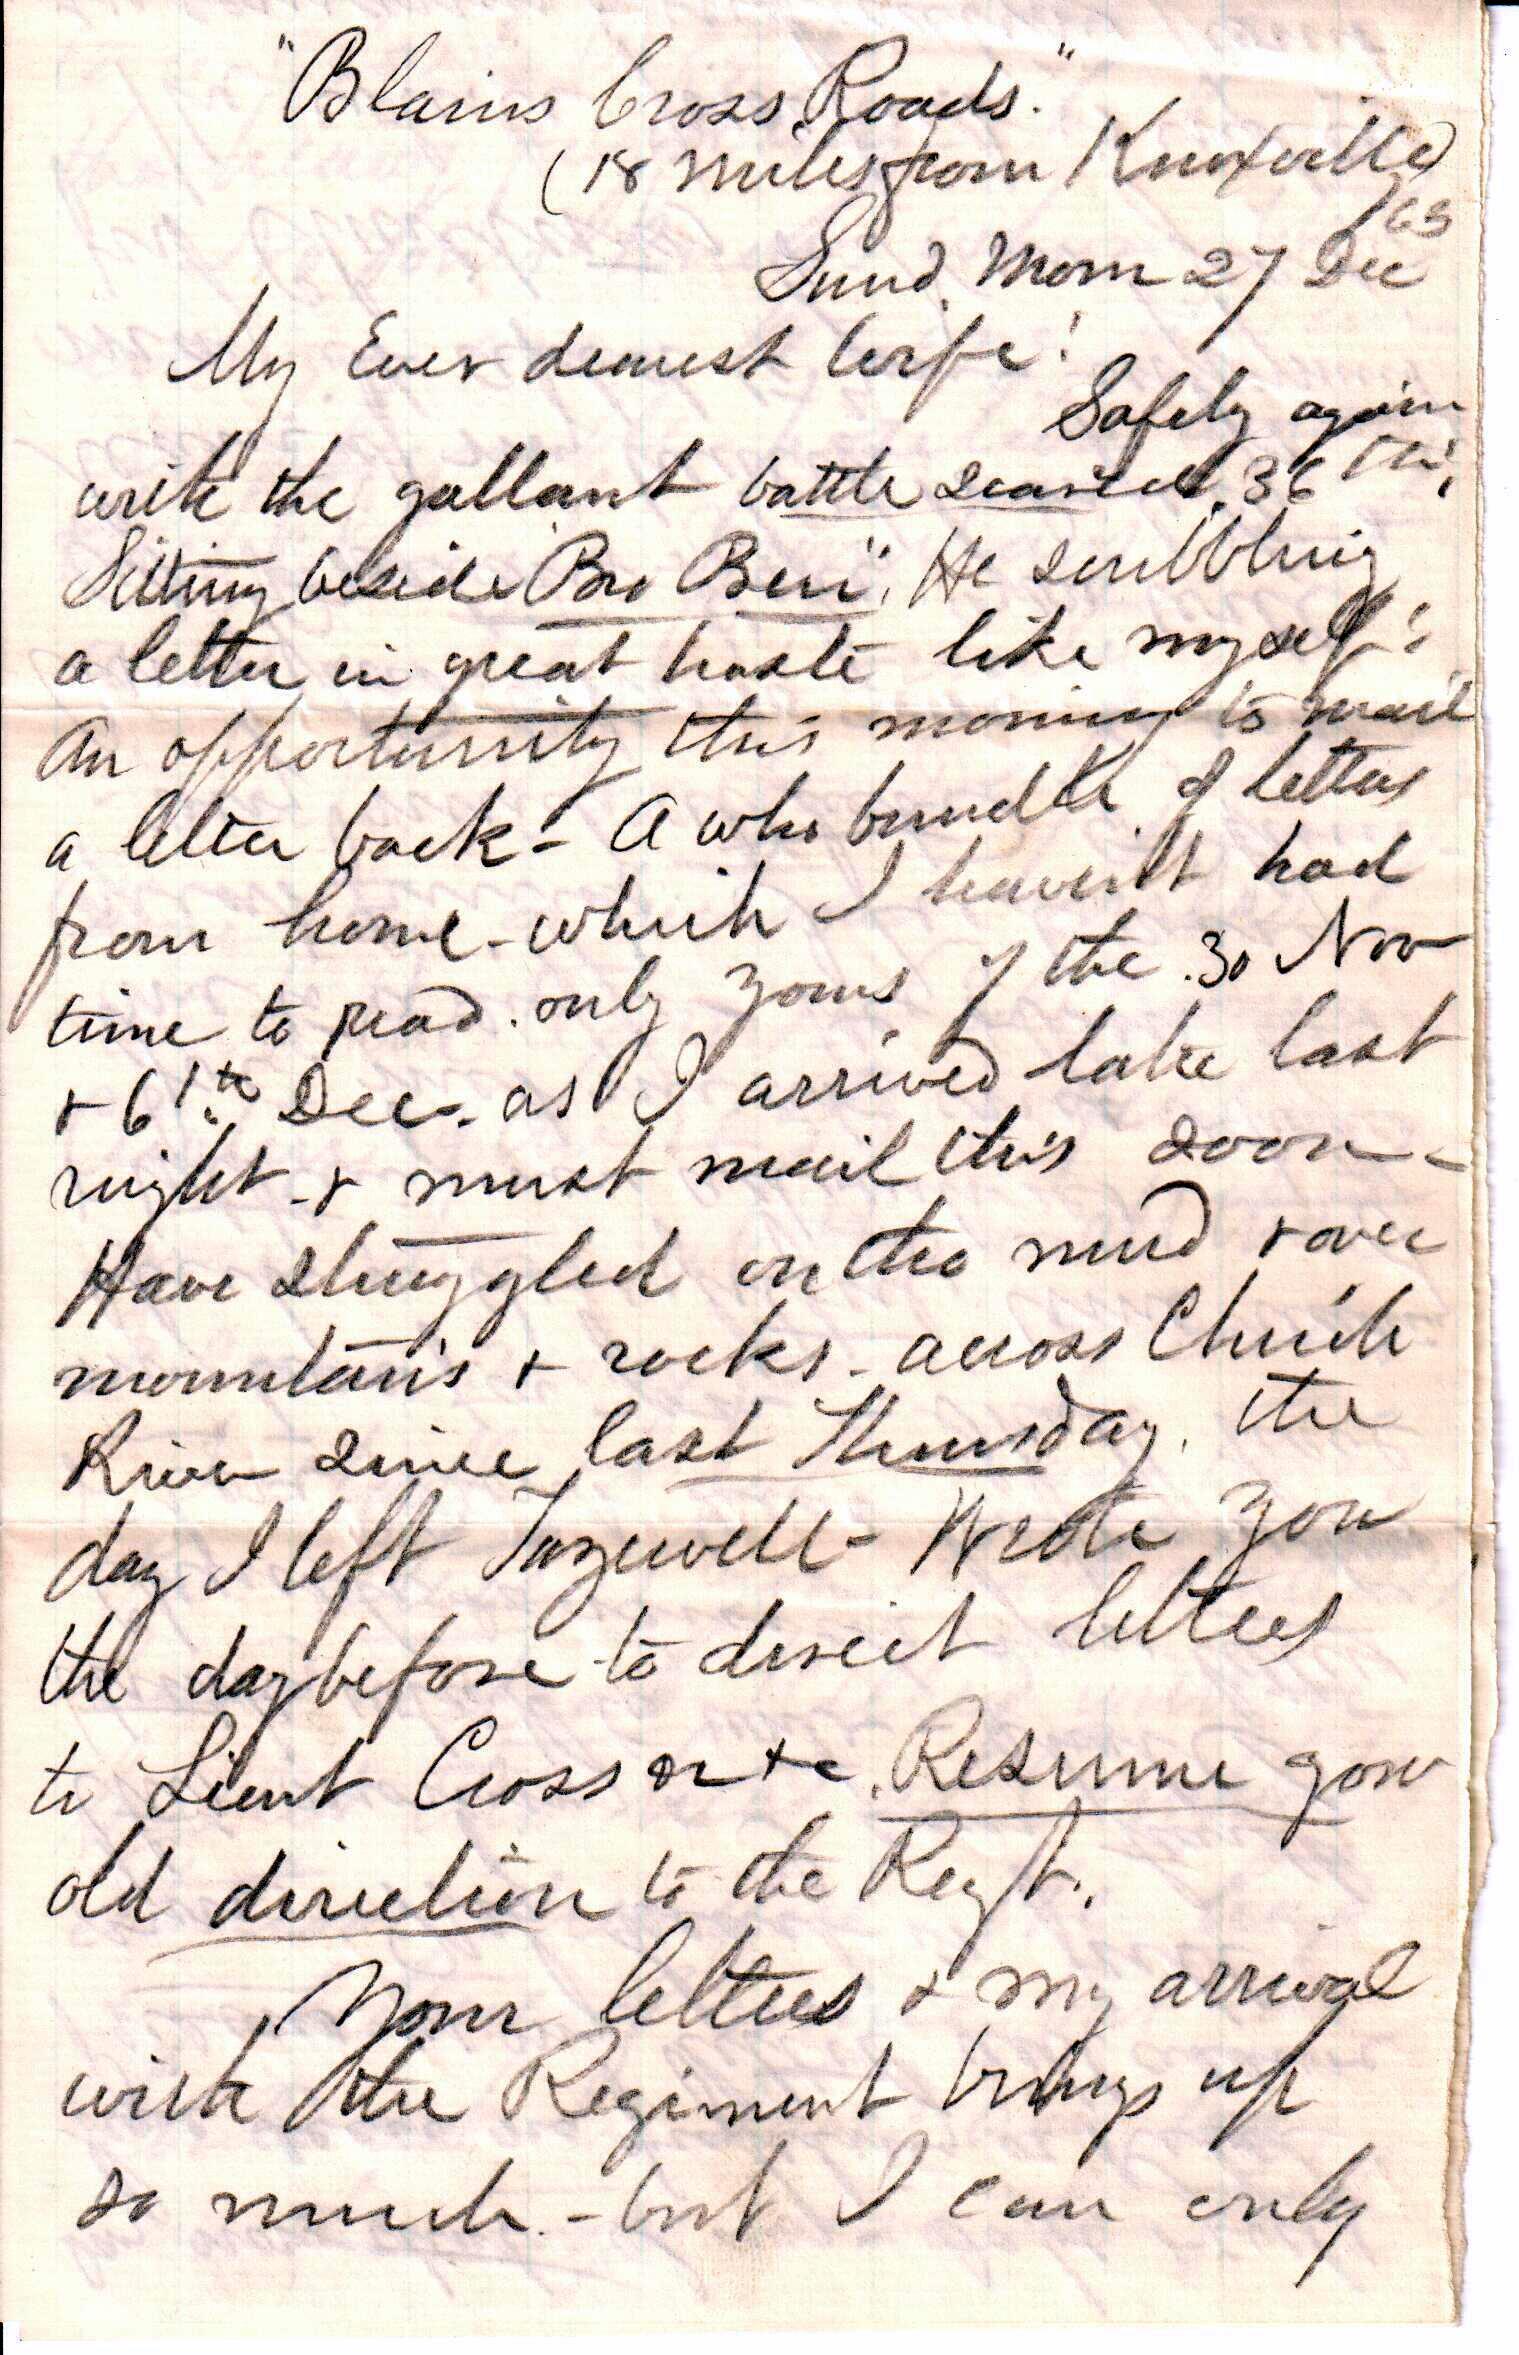 "Blains Cross Roads."
(18 miles from Knoxville)
63
Sund. Morn 27 Dec
My Ever dearest Wife!
Safely again
with the gallant battle scarred 36th!
Sitting beside "Bro Ben". He scribbling
a letter in great haste like myself!
An opportunity this morning to mail
a letter back - A who bundle of letters
from home - which I haven't had
time to read. only yours of the 30 Nov
& 6th Dec. as I arrived late last
night - & must mail this soon -
Have struggled on the mud & over
mountains & rocks - across Clinch
River since last Thursday. the
day I left Tazewell - Wrote you
the day before to direct letters
to Lieut Cross &c. Resume your
old direction to the Regt.
Your letters & my arrival
with the Regiment brings up
so much. - but I can only